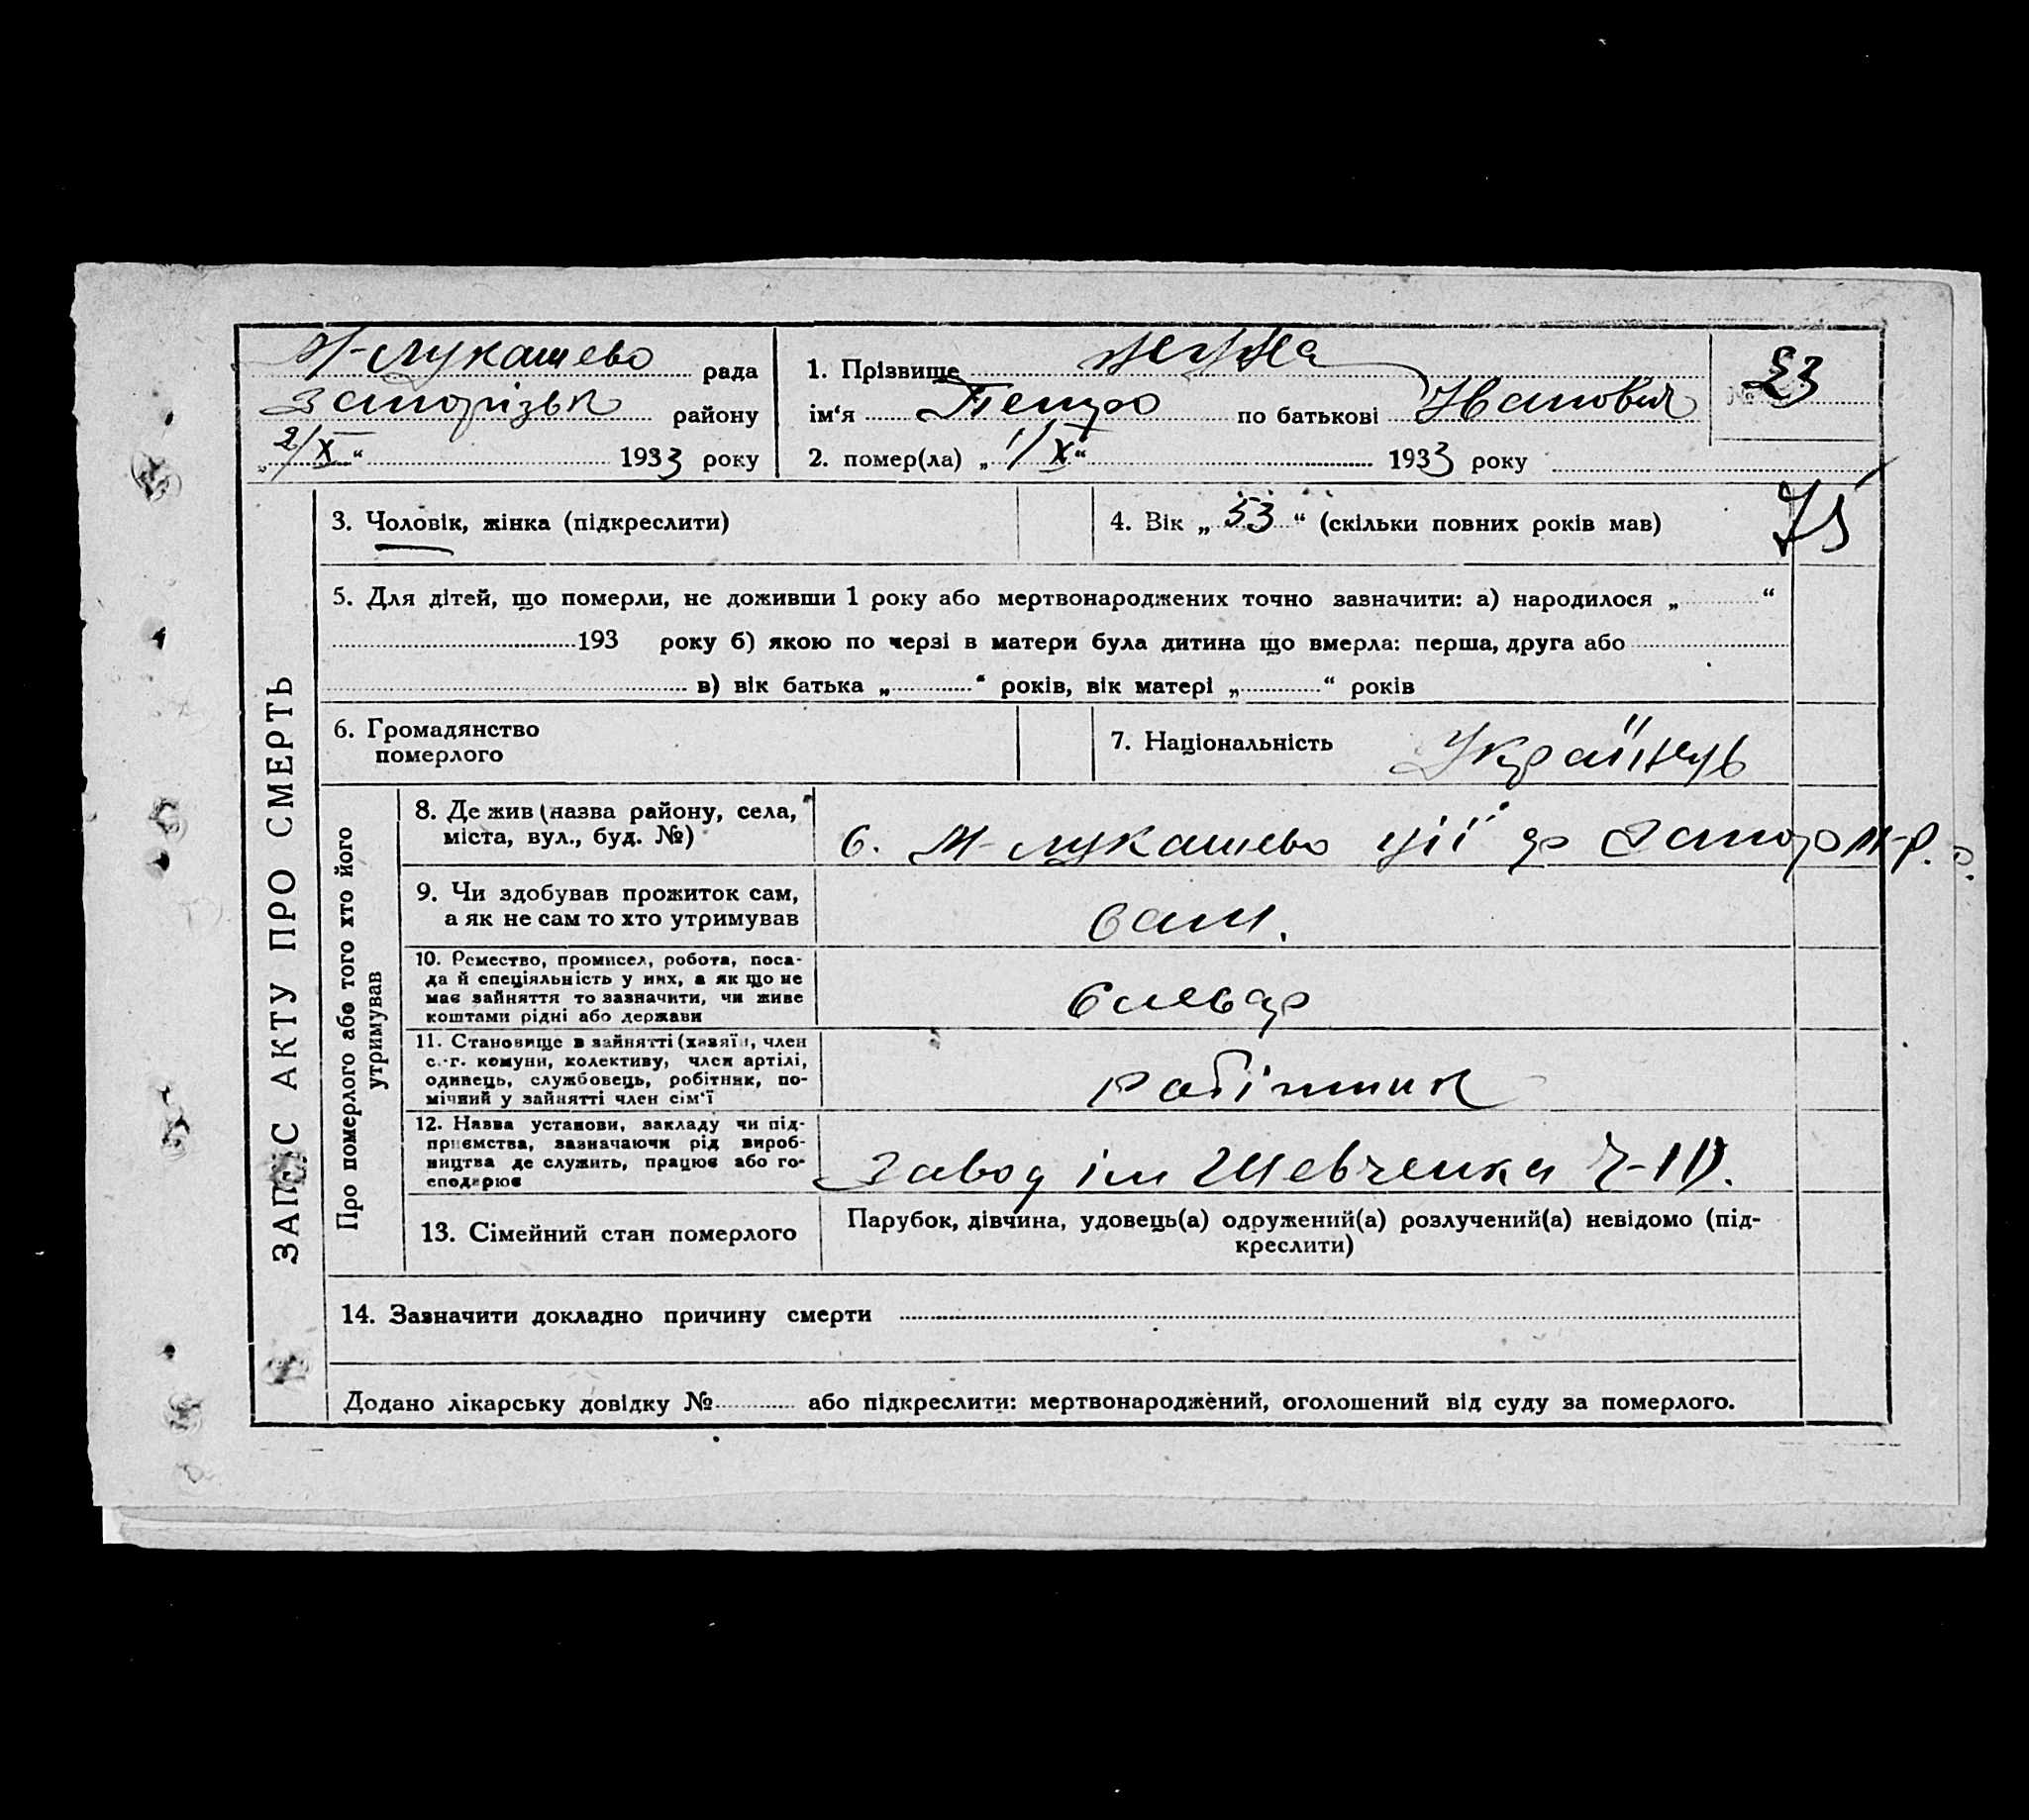 М-Лукашево рада
Запорізьк району
„2/X“ 1933 року
1. Прізвище
ім‘я Петро по батькові Иванович
2. помер(ла) „1/X“ 1933 року
23
ЗАПИС АКТУ ПРО СМЕРТЬ
3. Чоловік, жінка (підкреслити)
4. Вік „53“ (скільки повних років мав)
75
5. Для дітей, що померли, не доживши 1 року або мертвонароджених точно зазначити: а) народилося „ “
193 року б) якою по черзі в матери була дитина що вмерла: перша, друга або
в) вік батька „ “ років, вік матері „ “ років
6. Громадянство
померлого
7. Національність Українець
Про померлого або того хто його
утримував
8. Де жив (назва району, села,
міста, вул., буд. №)
с. М-Лукашево ції др Запор р.
9. Чи здобував прожиток сам,
а як не сам то хто утримував
сам.
10. Ремество, промисел, робота, поса-
да й спеціяльність у них, а як що не
має зайняття то зазначити, чи живе
коштами рідні або держави
слесар
11. Становище в зайнятті (хазяїн, член
с.-г. комуни, колективу, член артілі,
одинець, службовець, робітник, по-
мічний у зайнятті член сім‘ї
робітник
12. Назва установи, закладу чи під-
приємства, зазначаючи рід вироб-
ництва де служить, працює або го-
сподарює
Завод ім Шевченка
13. Сімейний стан померлого
Парубок, дівчина, удовець(а) одружений(а) розлучений(а) невідомо (під-
креслити)
14. Зазначити докладно причину смерти
Додано лікарську довідку № або підкреслити: мертвонароджений, оголошений від суду за померлого.